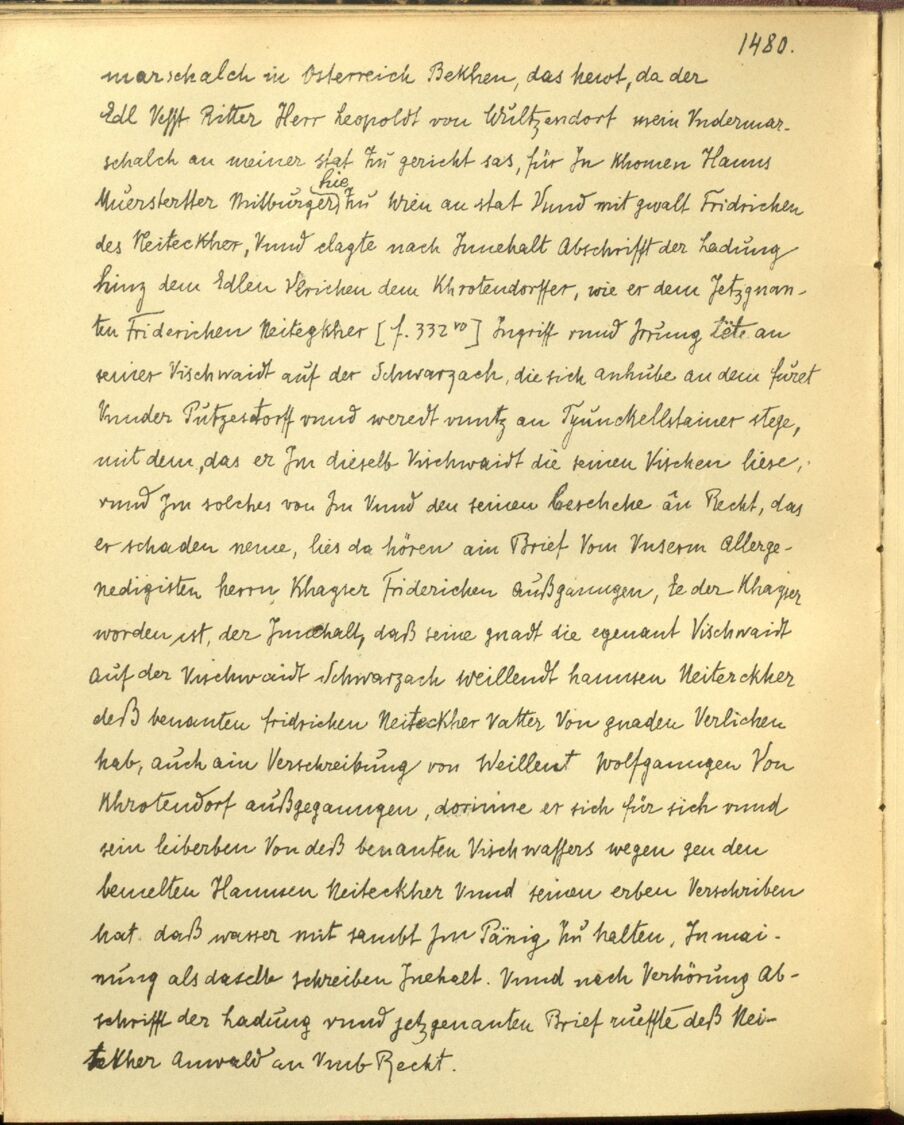 1480.
marschalch in Osterreich Bekhen, das hewt, da der
Edl Vesst Ritter Herr Leopoldt von Wultzendorf mein Vndermar-
schalch an meiner stat Zu gericht sas, für In khomen Hanns
Muerstertter Mitburger hie Zu Wien an stat Vnnd mit gwalt Fridrichen
des Neiteckher, Vnnd clagte nach Innehalt Abschrifft der Ladung
hinz dem Edlen Vlrichen dem Khrotendorffer, wie er dem Jetzgnan-
ten Friderichen Neitegkher [f. 332 vo] Ingriff vnnd Irrung tëte an
seiner Vischwaidt auf der Schwarzach, die sich anhube an dem furet
Vnnder Putzesdorff vnnd weredt vnntz an Tyunckellstainer stege,
mit dem, das er Im dieselb Vischwaidt die seinen Vischen liese,
vnnd Im solches von Im Vnnd den seinen beschehe ân Recht, das
er schaden neme, lies da hören ain Brief Vom Vnserm Allerge-
nedigisten herrn Khayser Friderichen Außganngen, Ee der Khayser
worden ist, der Innehalt, daß seine gnadt die egenant Vischwaidt
auf der Vischwaidt Schwarzach weillendt hannsen Neiterckher
deß benanten fridrichen Neiteckher Vatter Von gnaden Verlichen
hab, auch ain Verschreibung von Weillent Wolfganngen Von
Khrotendorf außgeganngen, dorinne er sich für sich vnnd
sein leiberben Von deß benanten Vischwassers wegen gen den
bemelten Hannsen Neiteckher Vnnd seinen erben Verschriben
hat daß wasser mit sambt Im Pänig Zu halten, In mai-
nung als daselb schreiben Inehalt. Vnnd nach Verhörung Ab-
schrifft der Ladung vnnd jetzgenanten Brief rueffte deß Nei-
tekher Anwald an Vmb Recht.